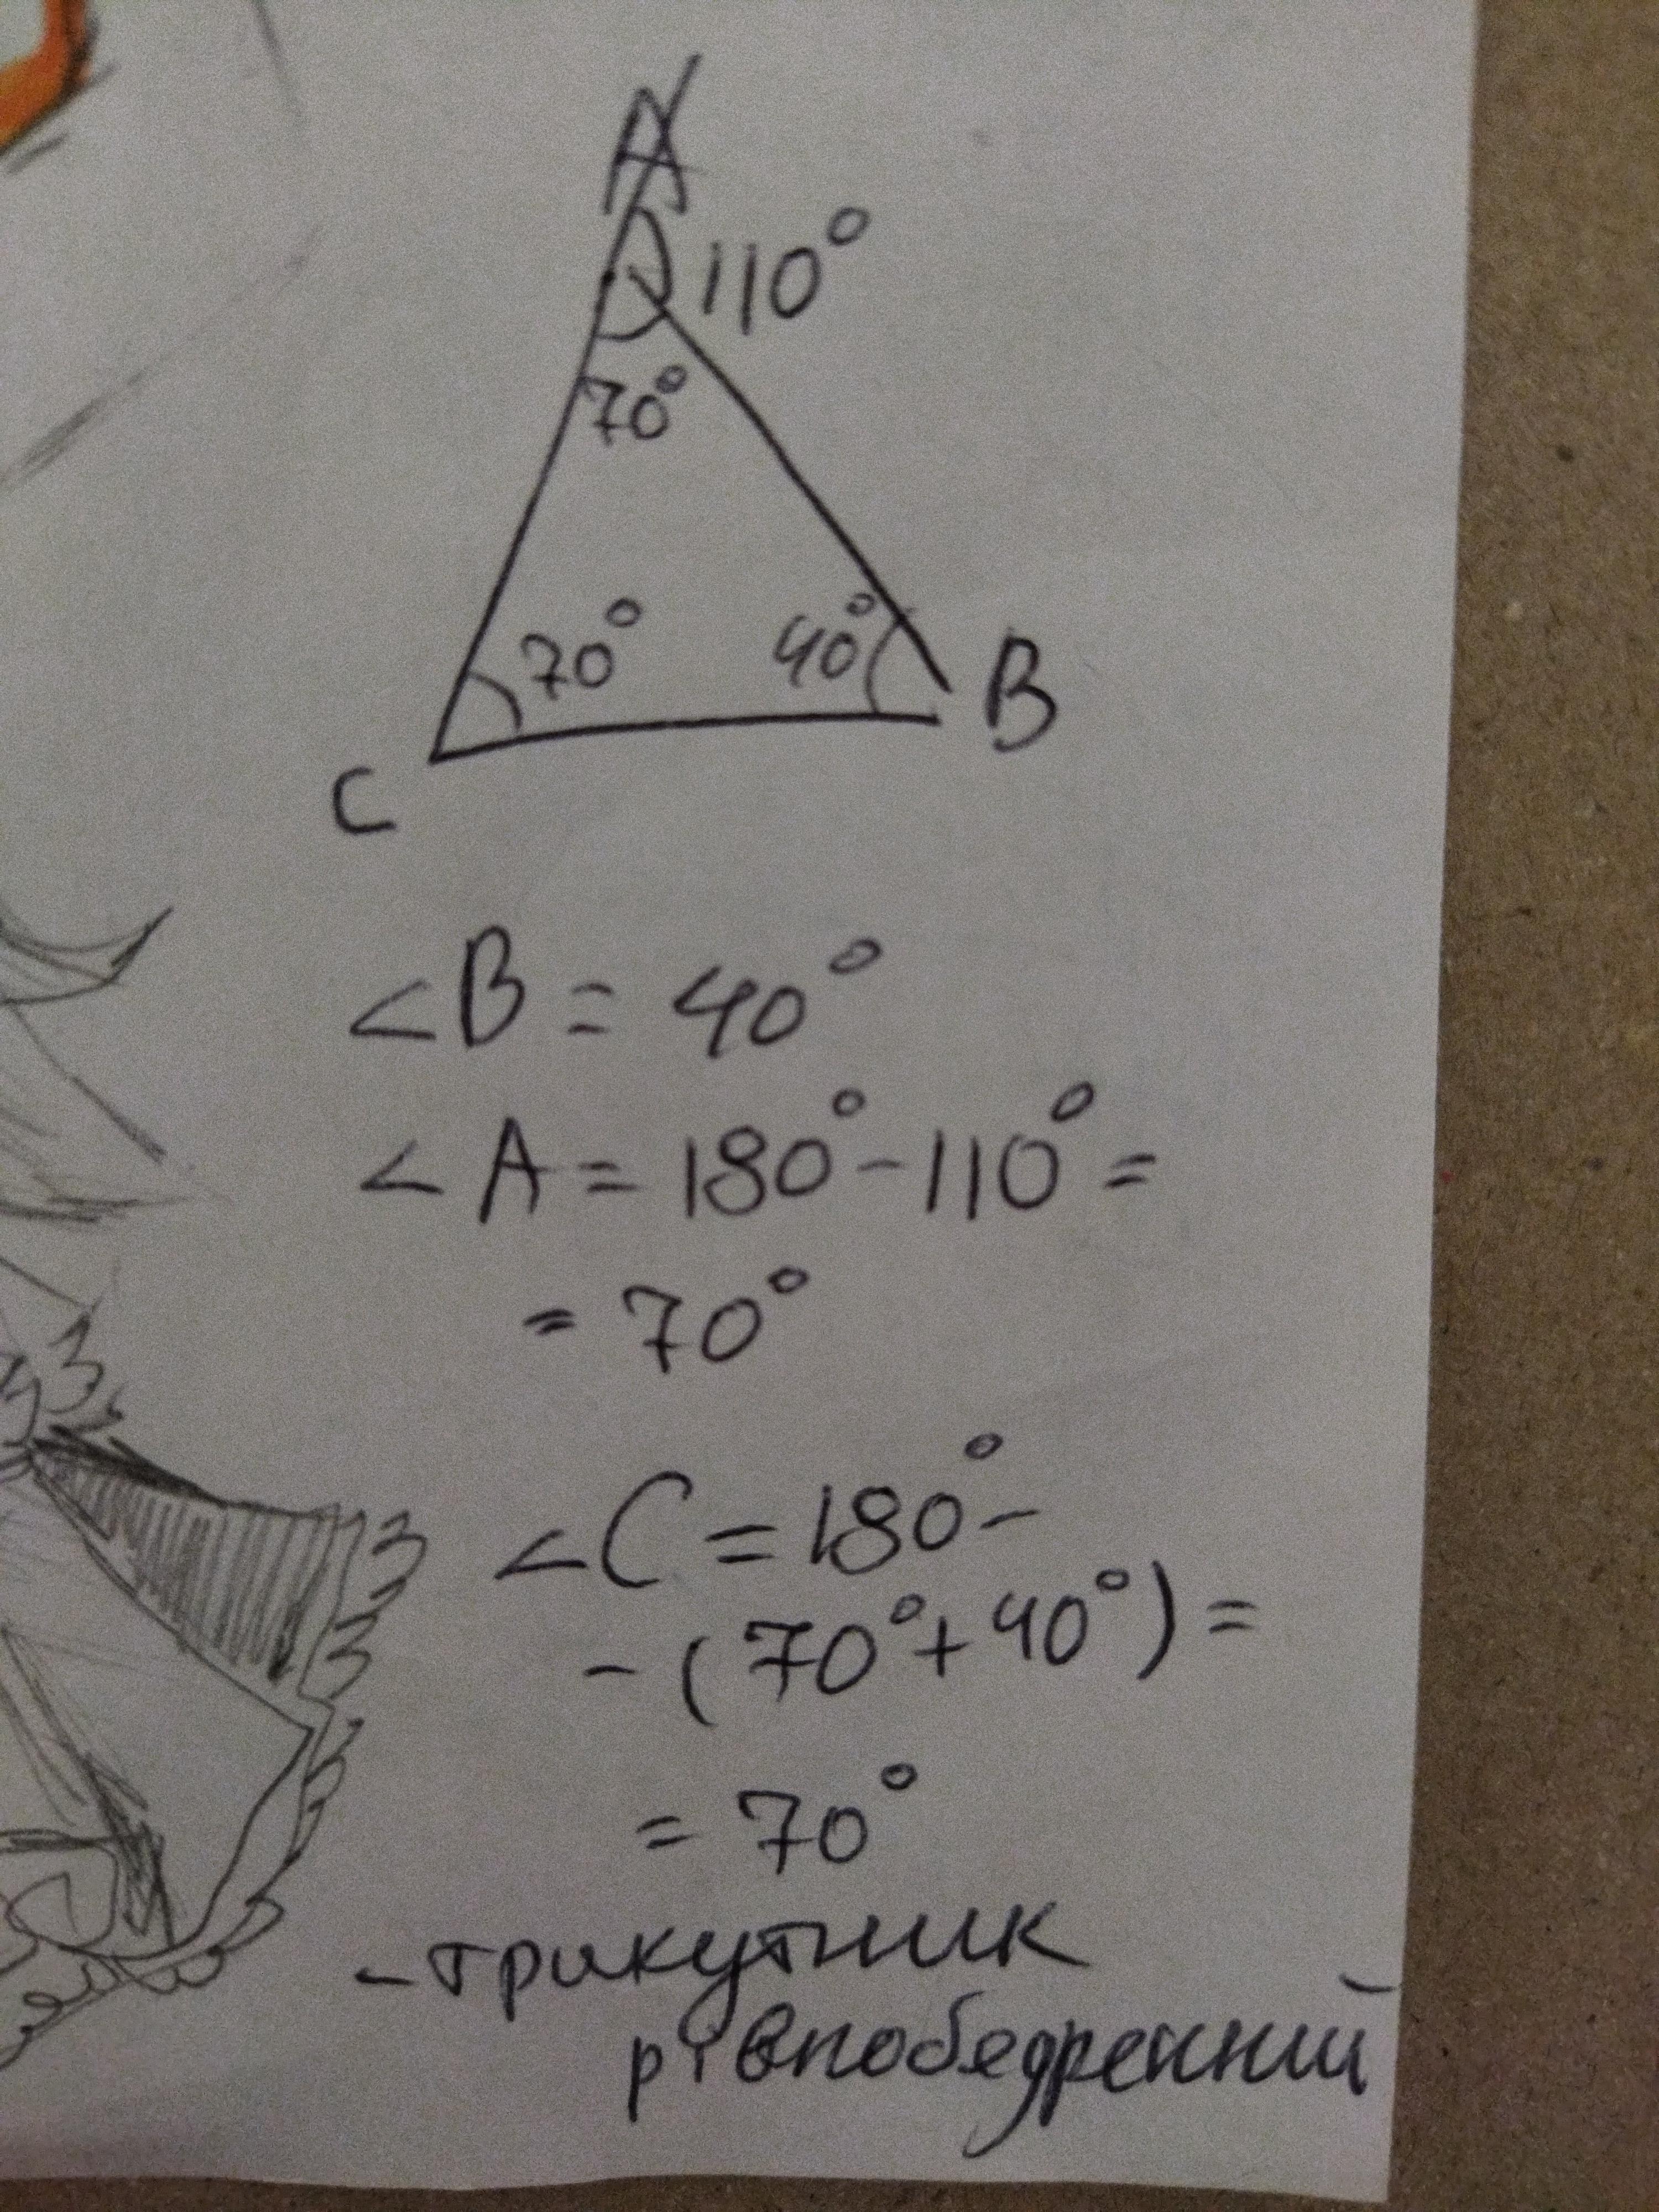 A
110°
70°
70°
40°
B
C
<B = 40°
<A = 180° - 110° =
= 70°
<C = 180° -
- (70° + 40°) =
= 70°
- трикутник
рівнобедренний